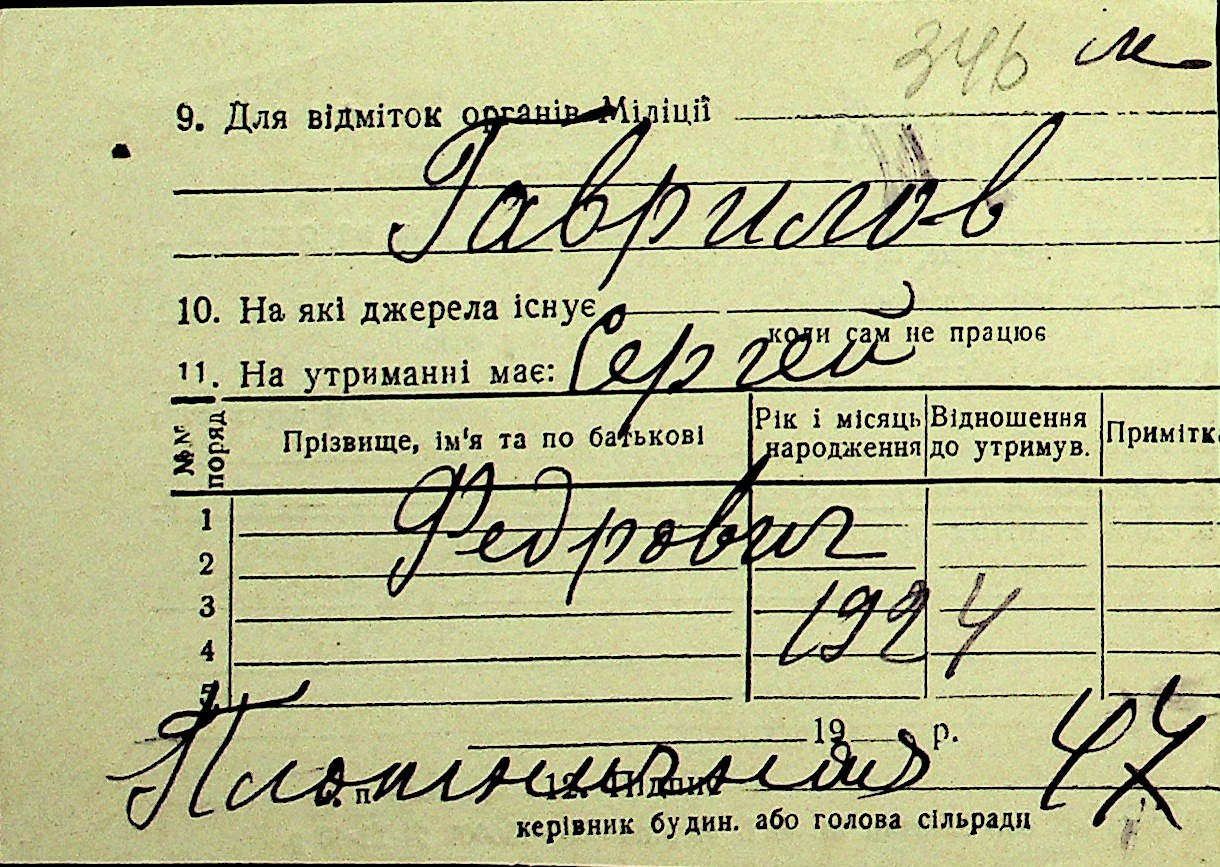 346 м
9. Для відміток органів Міліції
Гаврилов
10. На які джерела існує
коли сам не працює
Сергей
11. На утриманні має:
№№ поряд Прізвище, ім'я та по батькові Рік і місяць народження Відношення до утримув. Примітка
Федрович
1
2
3
1924
4
5
19 р.
44
12. Підпис
керівник будин. або голова сільради